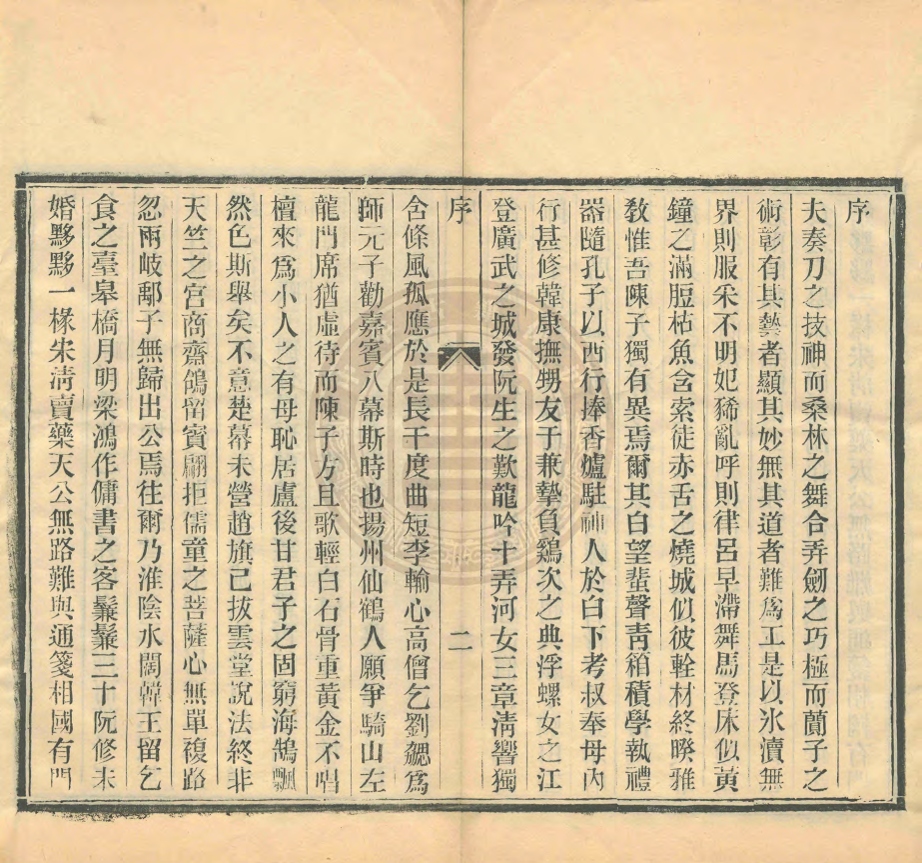 序
夫奏刀之技神而桑林之舞合弄劒之巧極而蘭子之
術彰有其藝者顯其妙無其道者難爲工是以氷瀆無
界則服采不明妃豨亂呼則律呂早滯舞馬登床似黃
鐘之滿脰枯魚含索徒赤舌之燒城似彼輇材終暌雅
敎惟吾陳子獨有異焉爾其白望蜚聲靑箱積學執禮
器隨孔子以西行捧香爐駐神人於白下考叔奉母內
行甚修韓康撫甥友于兼摯負鷄次之典浮螺女之江
登廣武之城發阮生之歎龍吟十弄河女三章淸響獨
序
二
含條風孤應於是長干度曲短李輸心高僧乞劉勰爲
師元子勸嘉賓入幕斯時也揚州仙鶴人願爭騎山左
龍門席猶虛待而陳子方且歌輕白石骨重黃金不唱
檀來爲小人之有母恥居盧後甘君子之固窮海鵠飄
然色斯舉矣不意楚幕未營趙旗已拔雲堂說法終非
天竺之宮商齋鴿留賓翩拒儒童之菩薩心無單複路
忽兩岐鄢子無歸出公焉往爾乃淮陰水闊韓王留乞
食之臺皋橋月明梁鴻作傭書之客鬑鬑三十阮修未
婚夥夥一椽宋淸賣藥天公無路難與通箋相國有門